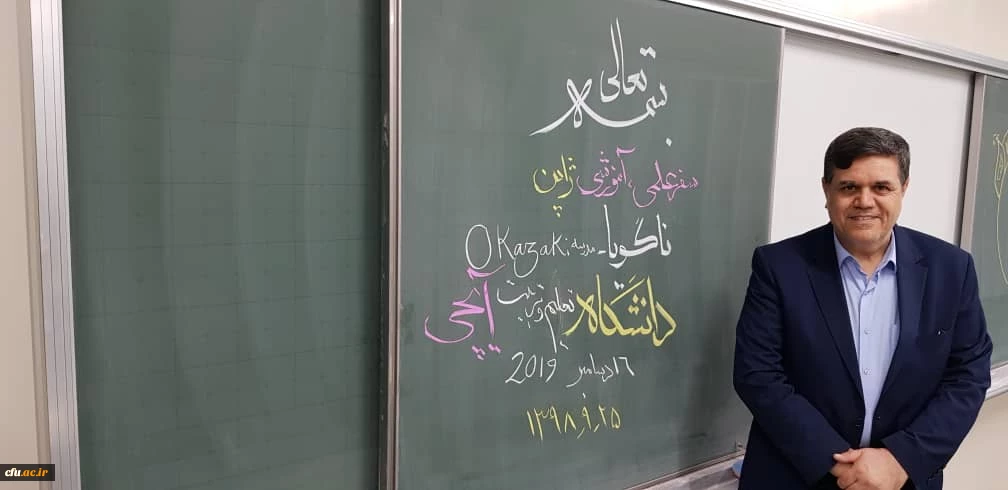 بسمه تعالی
سفر علمی، آموزشی ژاپن
ناگویا - مدرسه Okazaki
دانشگاه تعلیم و تربیت آیچی
۱۶ دسامبر 2019
۱۳۹۸٫۹٫۲۵
cfu.ac.ir